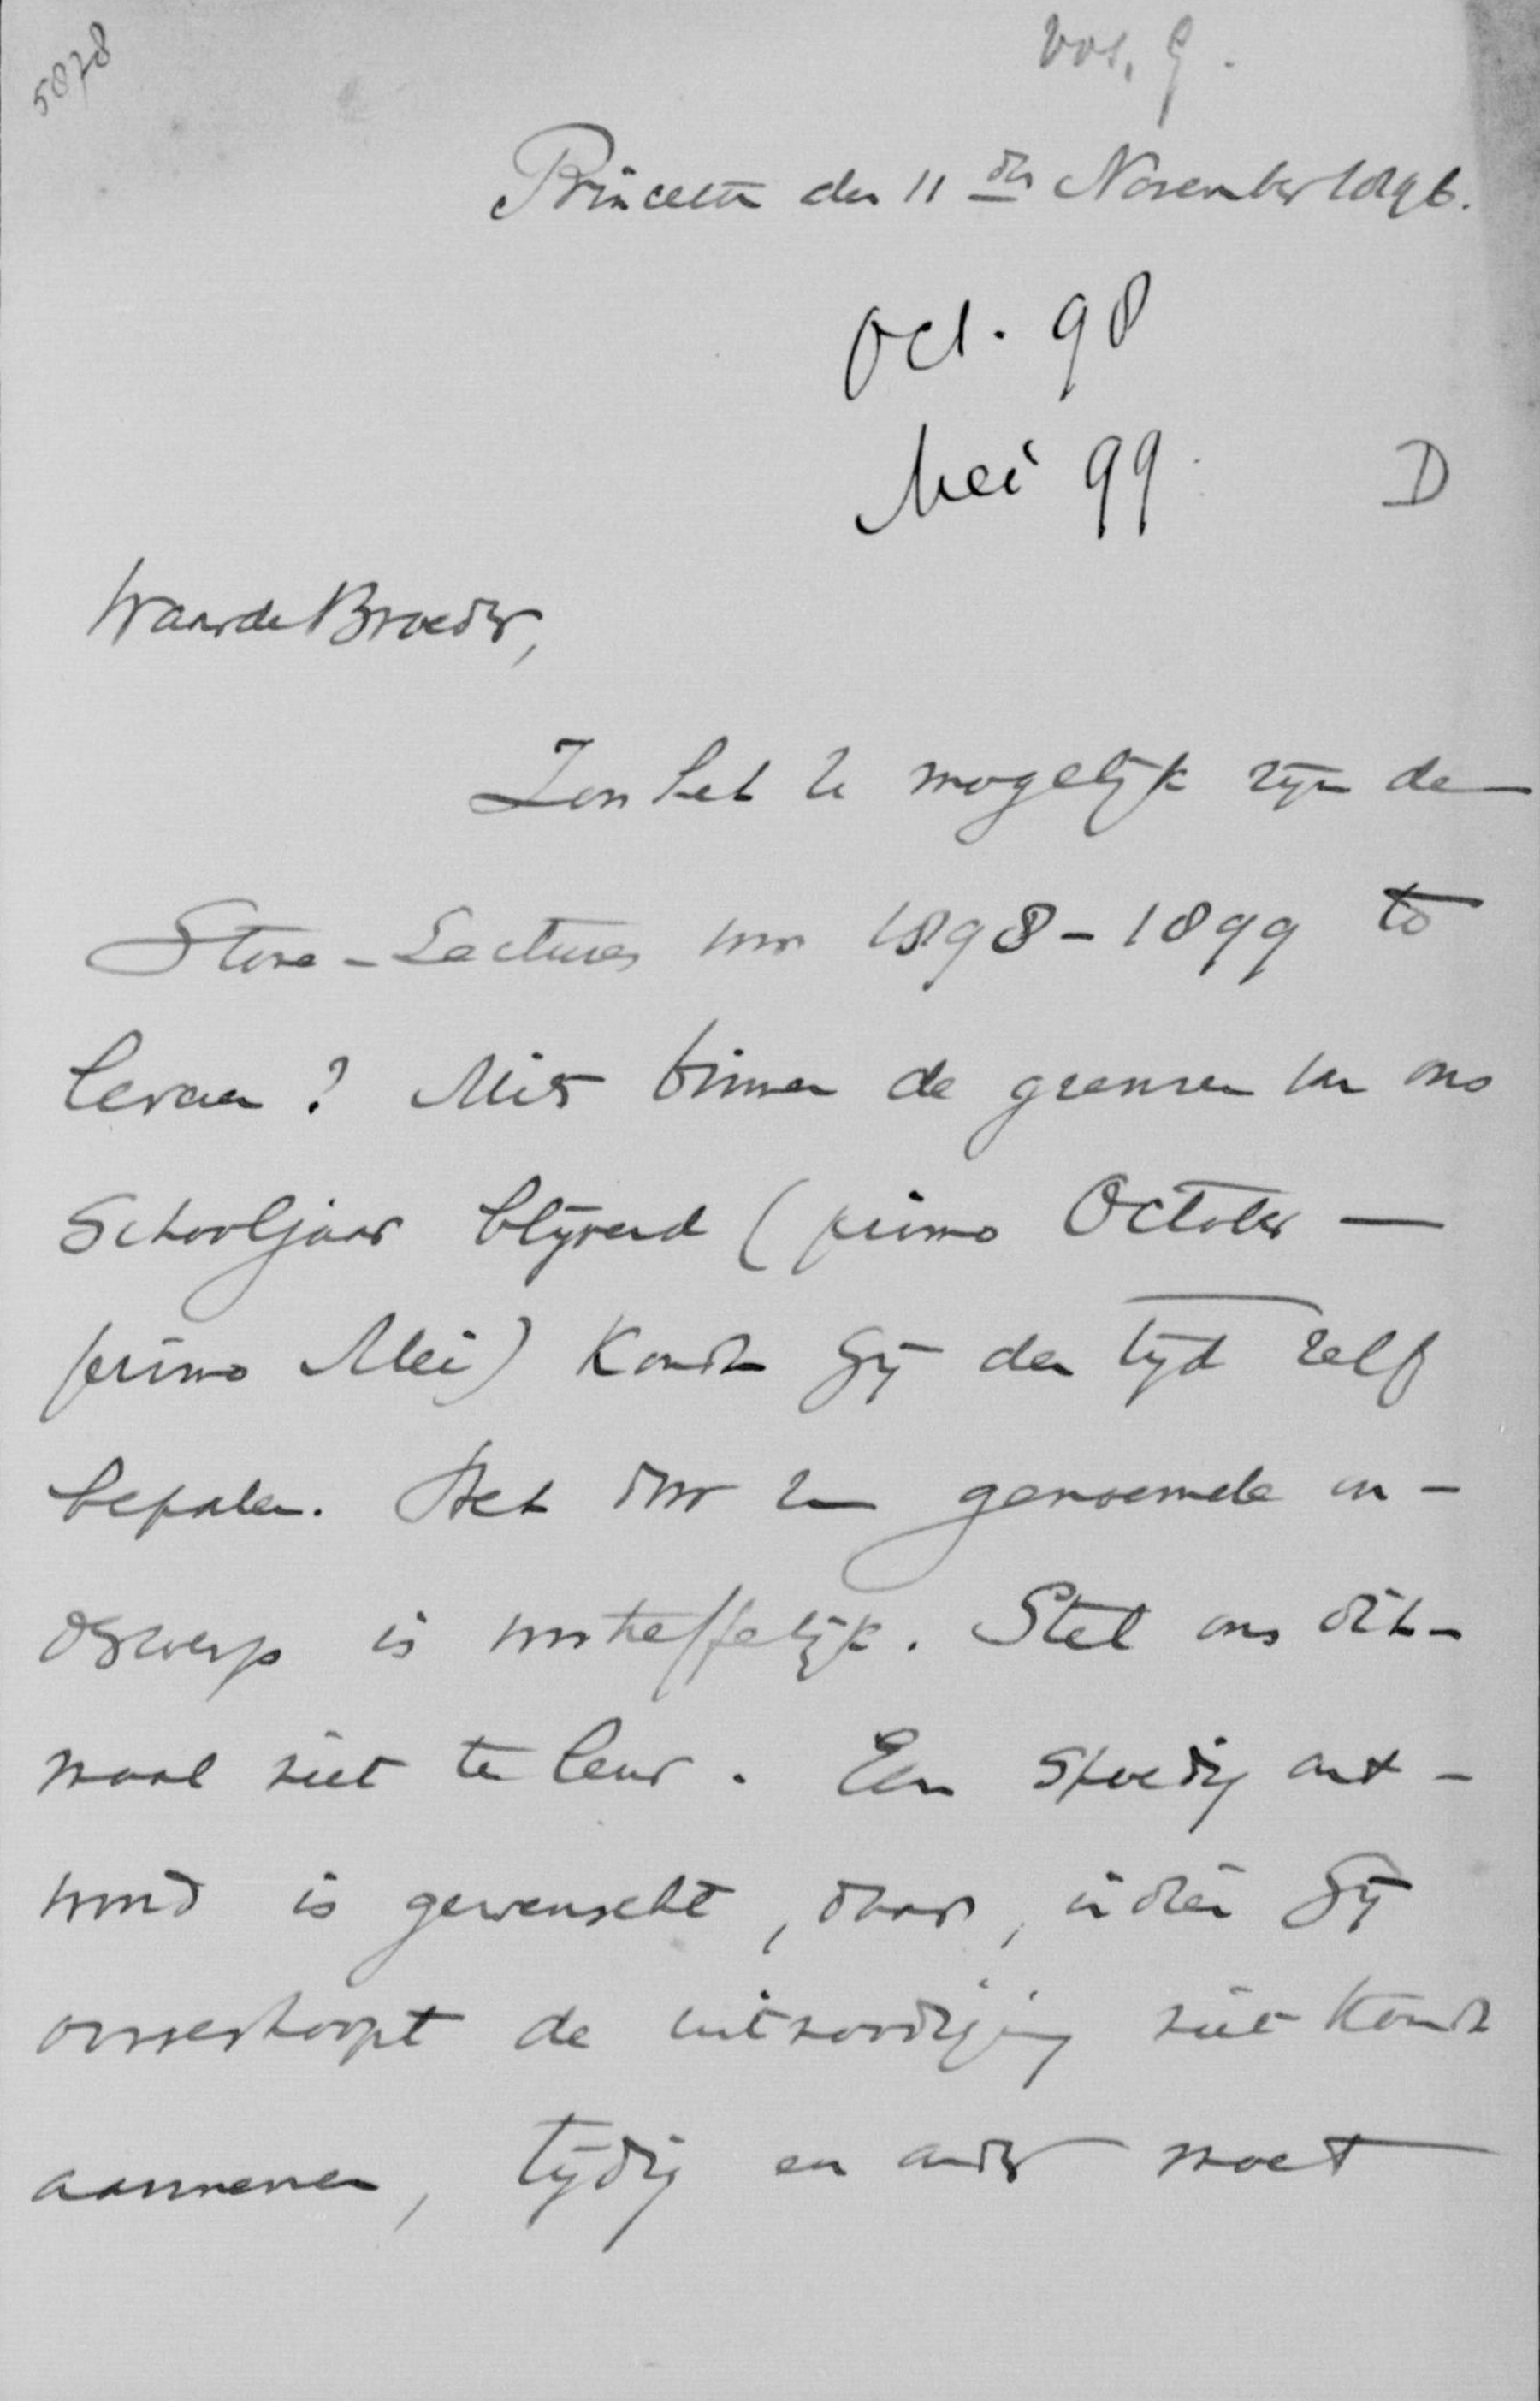 5878
Vos, G.
Princeton den 11den November 1896.
Oct. 98
Mei 99
D
Waarde Broeder,
Zou het U mogelijk zijn de
Stone-Lectures voor 1898-1899 te
leveren? Mits binnen de grenzen van ons
Schooljaar blijvend (primo October —
primo Mei) kondt Gij den tijd zelf
bepalen. Het door U genoemde on-
derwerp is voortreffelijk. Stel ons dit-
maal niet te leur. Een spoedig ant-
woord is gewenscht, daar, indien Gij
onverhoopt de uitnoodiging niet kondt
aannemen, tijdig een ander moet